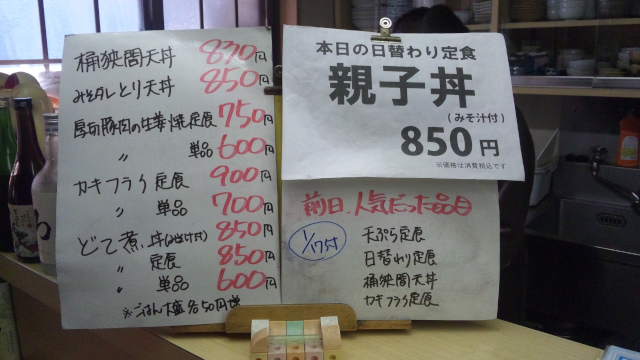 桶狭間天丼 830円
みそダレとり天丼 850円
厚切豚肉の生姜焼定食 750円
〃 単品 600円
カキフライ定食 900円
〃 単品 700円
どて煮 丼(みそ汁付) 850円
〃 定食 850円
〃 単品 600円
※ごはん大盛各50円増
本日の日替わり定食
親子丼
(みそ汁付)
850円
※価格は消費税込です
前日、人気だった品目
1/17付
天ぷら定食
日替わり定食
桶狭間天丼
カキフライ定食